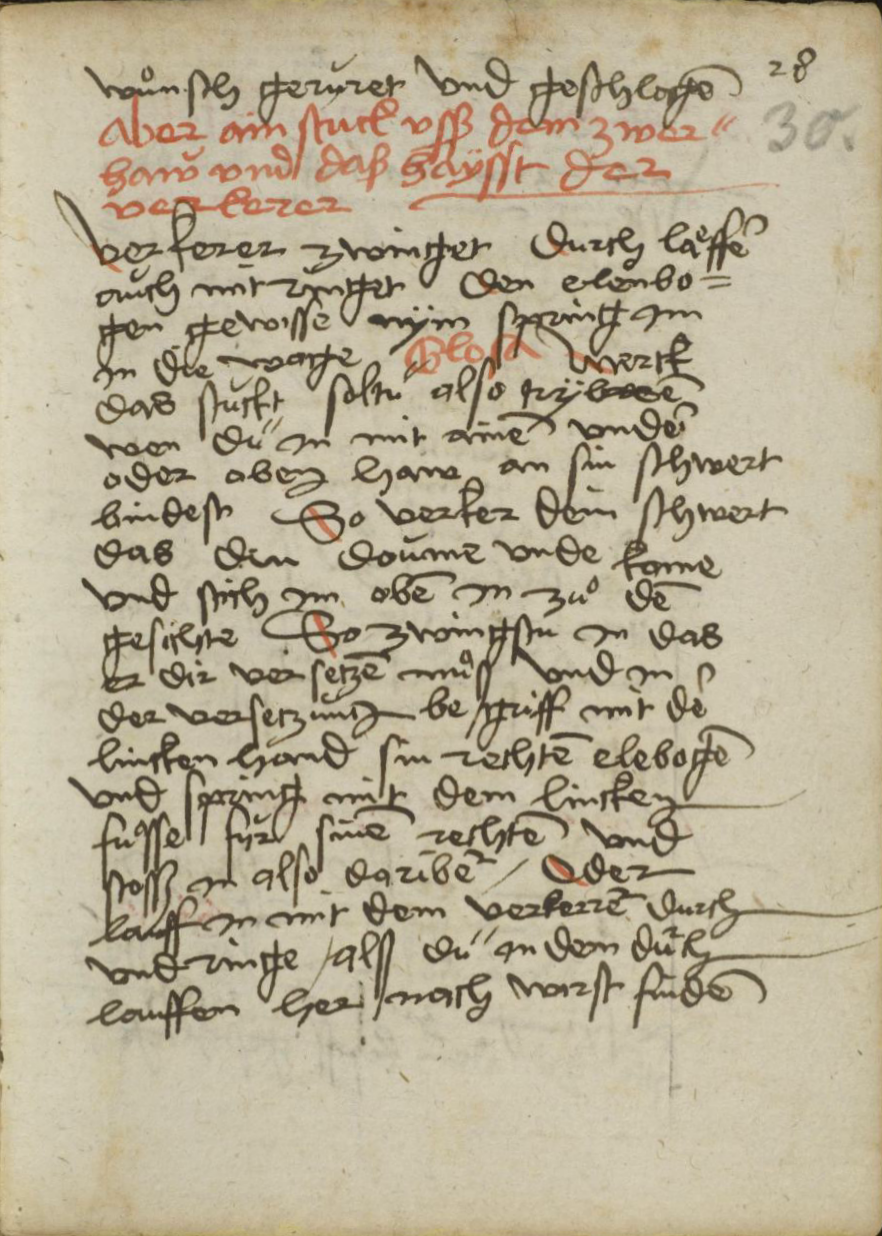 28
wůnsch gerüret Vnd geschlagē
30.
Aber ain stuck vsß dem zwer„
haw vnd daß haÿsst der
verkerer
Verkerer zwinget Durch läuffē
auch mit ringet Den elenbo=
gen gewisse nÿm spring im
in die wage Glosa Merck
das stuckt soltu also trÿbeē
wen du in mit ainē vndē
oder oben haw an sin schwert
bindest So verker dein schwert
das din doume vnde kome
vnd stich im obē in zů dē
gesichte So zwingstu in das
er dir versetzē můß vnd in
der versetzung begriff mit dē
lincken hand sin rechtē elebogē
vnd spring mit dem lincken
fuösse für sinē rechtē vnd
stosß in also daribēr / Oder
lauff in mit dem verkerrē durch
vnd ringe / alß du in dem durch
lauffen her nach wirst findē